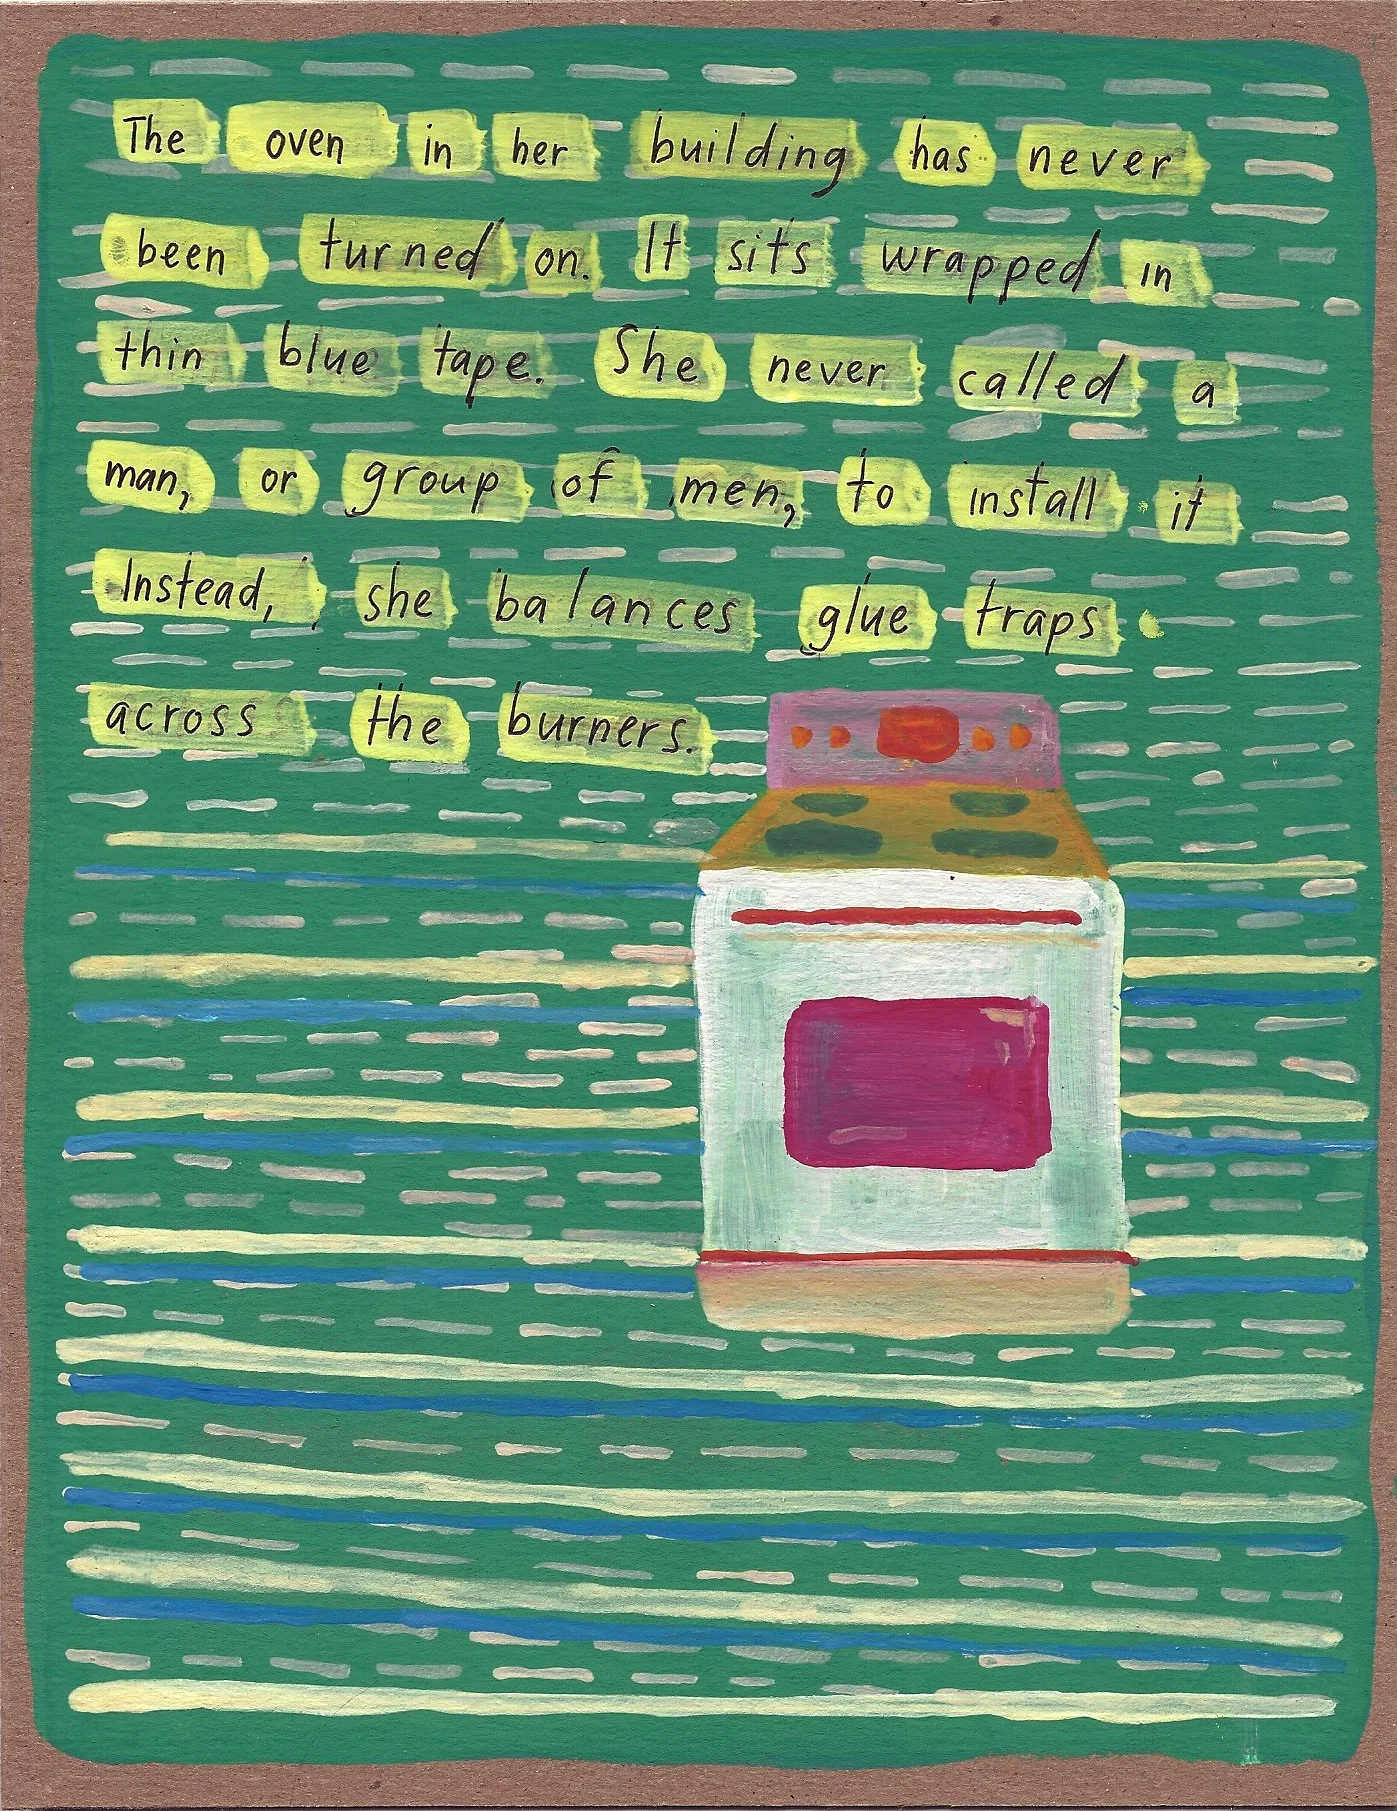 The oven in her building has never
been turned on. It sits wrapped in
thin blue tape. She never called a
man, or group of men, to install it
Instead, she balances glue traps
across the burners.